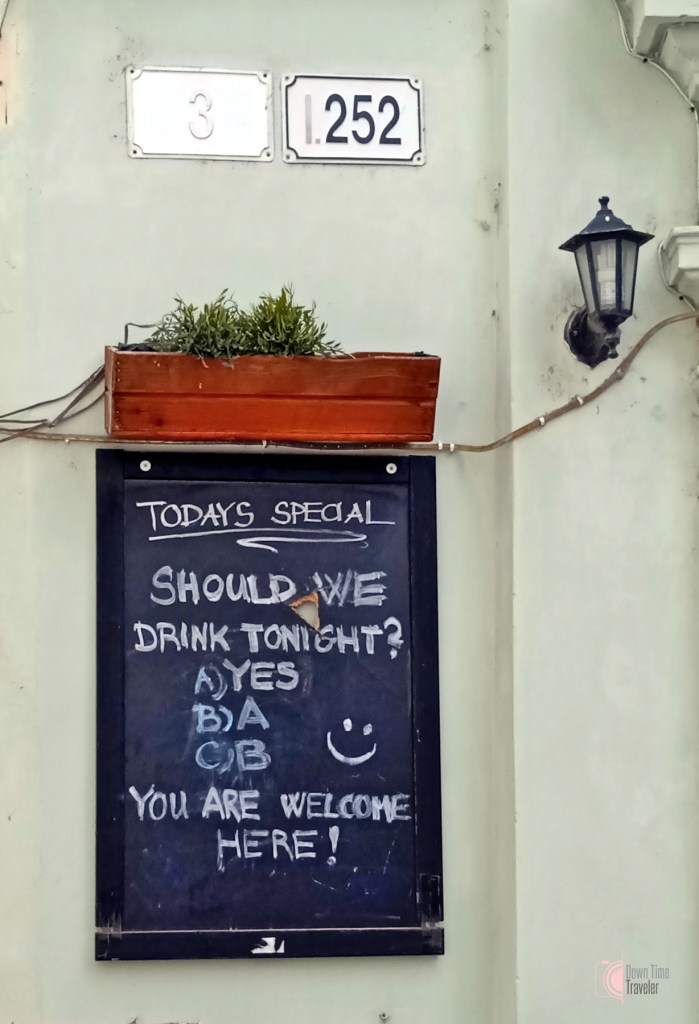 3
1.252
TODAYS SPECIAL
SHOULD WE
DRINK TONIGHT?
A) YES
B) A
C) B
YOU ARE WELCOME
HERE!
Down Time
Traveler